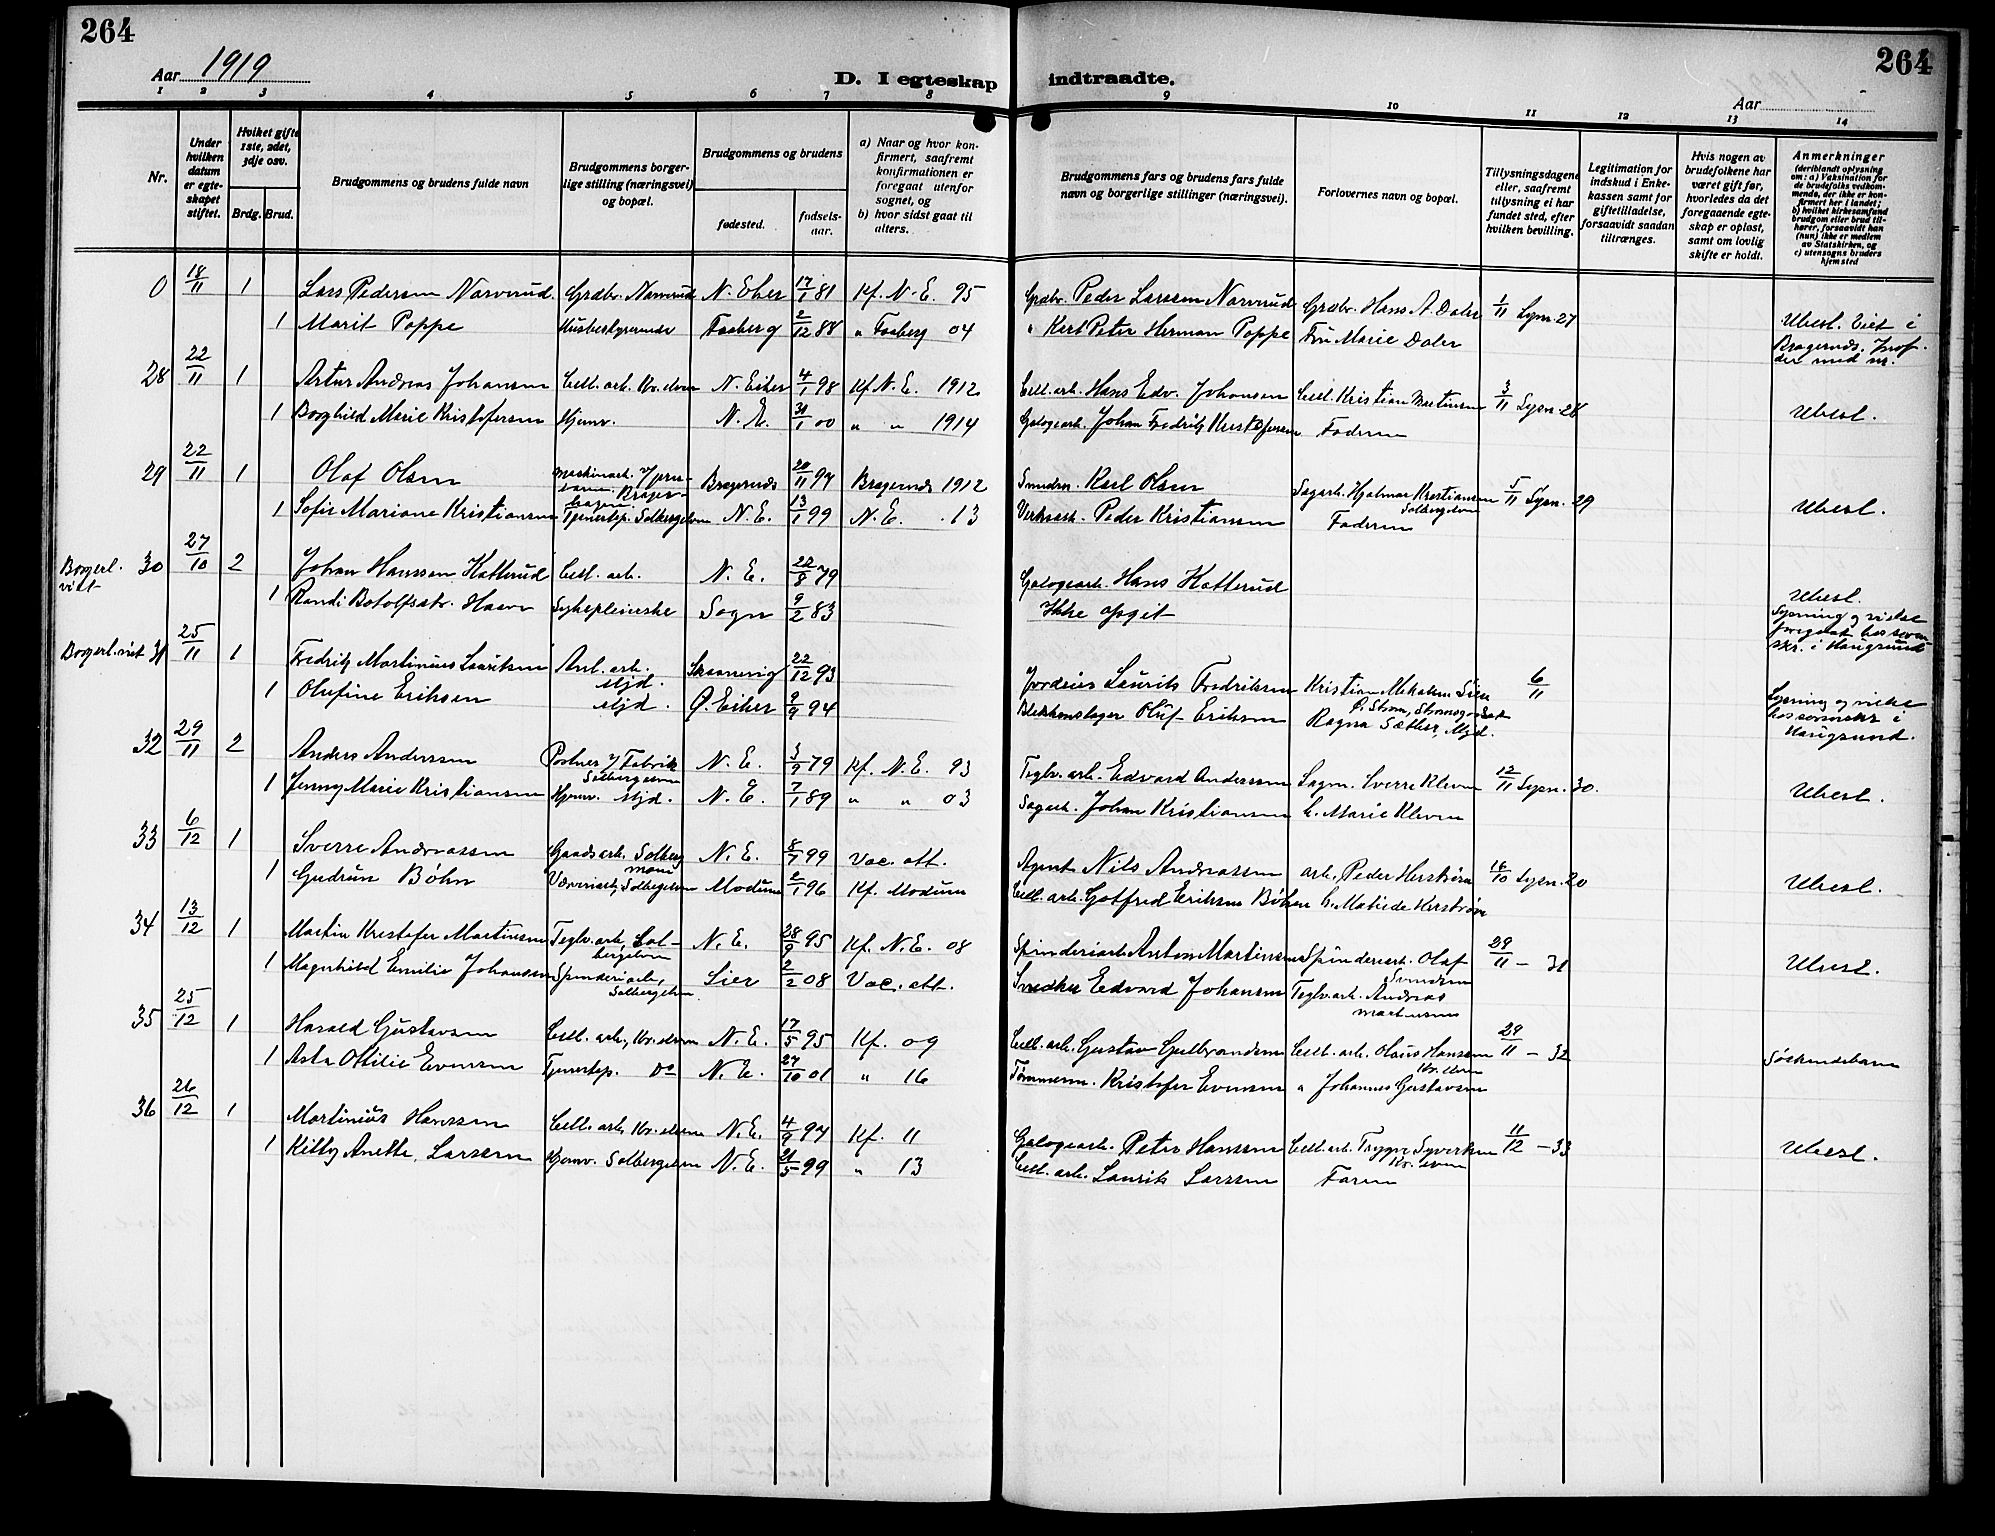 264
264
Aar 1919
D. I egteskap indtraadte.
Aar
1 2 3 4 5 6 7 8 9 10 11 12 13 14
Nr.
Under hvilken datum er egteskapet stiftet.
Hvilket gifte 1ste, 2det, 3dje osv.
Brdg. Brud.
Brudgommens og brudens fulde navn
Brudgommens borgerlige stilling (næringsvei) og bopæl.
Brudgommens og brudens
fødested.
fødselsaar.
a) Naar og hvor konfirmert, saafremt konfirmationen er foregaat utenfor sognet, og
b) hvor sidst gaat til alters.
Brudgommens fars og brudens fars fulde navn og borgerlige stillinger (næringsvei).
Forlovernes navn og bopæl.
Tillysningsdagene eller, saafremt tillysning ei har fundet sted, efter hvilken bevilling.
Legitimation for indskud i Enkekassen samt for giftetilladelse, forsaavidt saadan tiltrænges.
Hvis nogen av brudefolkene har været gift før, hvorledes da det foregaaende egteskap er opløst, samt om lovlig skifte er holdt.
Anmerkninger (deriblandt oplysning om: a) Vaksination for de brudefolks vedkommende, der ikke er konfirmert her i landet; b) hvilket kirkesamfund brudgom eller brud tilhører, forsaavidt han (hun) ikke er medlem av Statskirken, og c) utensogns bruders hjemsted
0 18/11 1 Lars Pedersen Narverud Grdbr. Narverud N. Eker 17/1 81 Kf. N. E. 95 Grdbr. Peder Larssen Narverud Grdbr. Hans A. Daler 1/11 Lysn. 27
1 Marit Poppe Husbestyrerinde Faaberg 2/12 88 " Faaberg 04 " Karl Peter Herman Poppe Fru Marie Daler Ubesl. Viet i Bragernds.
28 22/11 1 Artur Andreas Johansen Cell. arb. Kr. elven N. Eiker 4/1 98 Kf N. E. 1912 Cell. arb. Hans Edv. Johansen Cell. Kristian Martinsen 3/11 Lysn. 28
1 Borghild Marie Kristofersen Hjemv. N. E. 31/1 00 " " 1914 Galogearb. Johan Fredrik Kristofersen Faderen Ubesl.
29 22/11 1 Olaf Olsen Bragernds 20/11 97 Bragernds 1912 Karl Olsen Sagarb. Hjalmar Kristiansen Solbergelven 5/11 Lysn. 29
1 Sofie Mariane Kristiansen Tjenestep. Solbergelven N. E. 13/1 99 N. E. 13 Verksarb. Peder Kristiansen Faderen Ubesl.
Borgerl. viet 30 27/10 2 Johan Hanssen Katterud Cell. arb. N. E. 22/8 79 Galogearb. Hans Katterud
1 Randi Botolfsdtr. Sykepleierske Sogn 9/2 83 Ikke opgit Ubesl. Lysning og vielse foregaat hos sorenskr. i Haugsund
Borgerl. viet 31 25/11 1 Fredrik Martinius Lauritsen Anl. arb. Mjd. Skaanevig 22/12 93 Laurits Fredriksen Kristian 6/11
1 Olufine Eriksen Mjd. Ø. Eiker 9/9 94 Blikkenslager Oluf Eriksen Ragna Sæther, Mjd. Lysning og vielse hos sorenskr i Haugsund.
32 29/11 2 Anders Andersen Portner v/ Fabrik Solbergelven N. E. 3/9 79 Kf. N. E. 93 Teglv. arb. Edvard Anderssen Sagm. Sverre Kleven 12/11 Lysn. 30.
1 Jenny Marie Kristiansen Hjemv. Mjd. N. E. 7/1 89 " " 03 Sagarb. Johan Kristiansen h. Marie Kleven Ubesl.
33 6/12 1 Sverre Andreassen Gaardsarb. Solbergmoen N. E. 8/7 99 Vac. att. Agent Nils Andreassen arb. Peder Herstrøm 16/10 Lysn. 20
1 Gudrun Bøhn Væveriarb. Solbergelven Modum 2/1 96 Kf. Modum Cell. arb. Gotfred Eriksen Bøhn h. Matilde Herstrøm Ubesl.
34 13/12 1 Martin Kristofer Martinsen Teglv. arb. Solbergelven N. E. 28/9 95 Kf. N. E. 08 Spinderiarb. Anton Martinsen Spinderiarb. Olaf Svendsen 29/11 – 31
1 Magnhild Emilie Johansen Spinderiarb. Solbergelven Lier 2/2 08 Vac. att. Snedker Edvard Johansen Teglv. arb. Andreas Martinsen Ubesl.
35 25/12 1 Harald Gustavsen Cell. arb., Kr. elven N. E. 17/5 95 Kf. 09 Cell. arb. Gustav Gulbrandsen Cell. arb. Olaus Hansen Kr. elven 29/11 – 32
1 Asta Otilie Evensen Tjenestep. Do N. E. 27/10 01 " 16 Tømmerm. Kristofer Evensen " Johannes Gustavsen Søskendebarn
36 26/12 1 Martinius Hanssen Cell. arb. Kr. elven N. E. 4/9 97 Kf. 11 Galogearb. Peter Hanssen Cell. arb. Trygve Syversen Kr. elven 11/12 – 33
1 Kitty Anette Larsen Hjemv. Solbergelven N. E. 21/5 99 " 13 Cell. arb. Laurits Larssen Faren Ubesl.